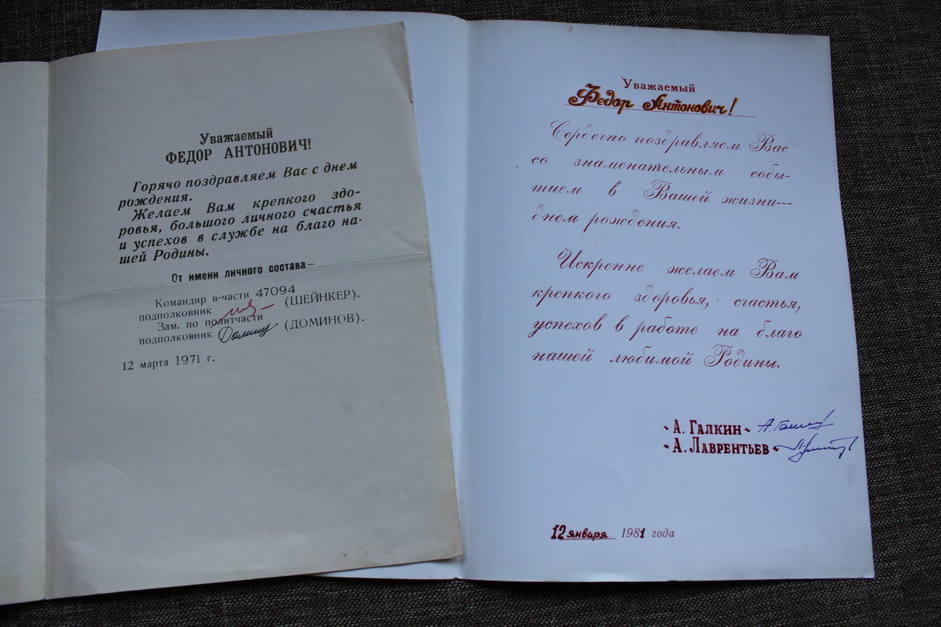 Уважаемый
ФЕДОР АНТОНОВИЧ!
Горячо поздравляем Вас с днем
рождения.
Желаем Вам крепкого здо-
ровья, большого личного счастья
и успехов в службе на благо на-
шей Родины.
От имени личного состава—
Командир в-части 47094
подполковник (ШЕЙНКЕР).
Зам. по политчасти
подполковник (ДОМИНОВ).
12 марта 1971 г.
Уважаемый
Федор Антонович!
Сердечно поздравляем Вас
со знаменательным собы-
тием в Вашей жизни---
днем рождения.
Искренне желаем Вам
крепкого здоровья, счастья,
успехов в работе на благо
нашей любимой Родины.
А. ГАЛКИН
А. ЛАВРЕНТЬЕВ
12 января 1981 года